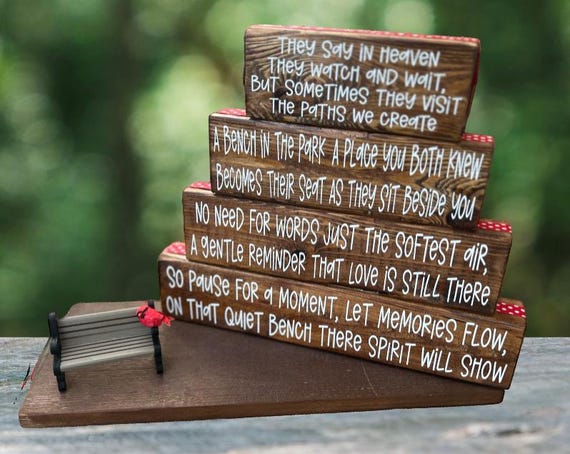 They say in Heaven
They watch and wait,
But sometimes they visit
The paths we create
A bench in the park a place you both knew
Becomes their seat as they sit beside you
No need for words just the softest air,
A gentle reminder that love is still there
So pause for a moment, let memories flow,
On that quiet bench there spirit will show